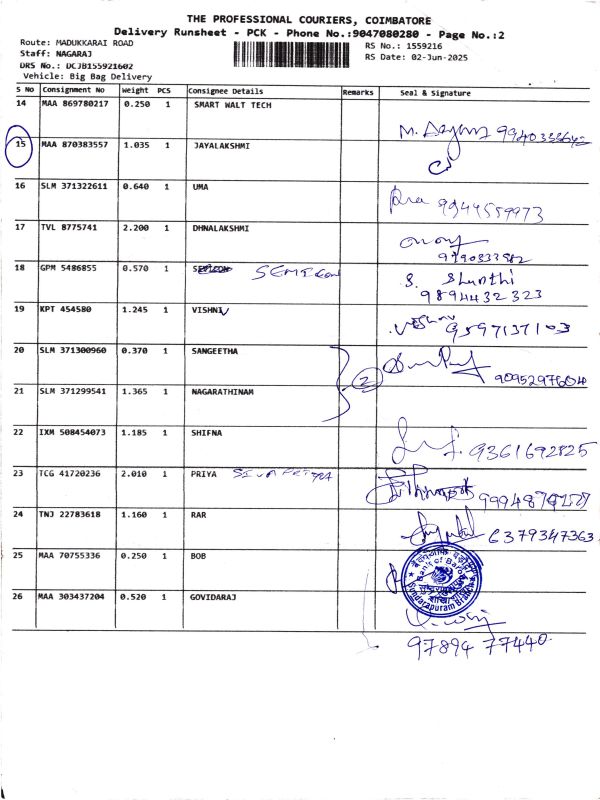 THE PROFESSIONAL COURIERS, COIMBATORE
Delivery Runsheet - PCK - Phone No.:9047080280 - Page No.:2
Route: MADUKKARAI ROAD
RS No.: 1559216
Staff: NAGARAJ
RS Date: 02-Jun-2025
DRS No.: DCJB155921602
Vehicle: Big Bag Delivery
S No Consignment No Weight PCS Consignee Details Remarks Seal & Signature
14 MAA 869780217 0.250 1 SMART WALT TECH
15 MAA 870383557 1.035 1 JAYALAKSHMI
16 SLM 371322611 0.640 1 UMA
9944559973
17 TVL 8775741 2.200 1 DHNALAKSHMI
18 GPM 5486855 0.570 1 SEMICON
S. Shanthi
9894432323
19 KPT 454580 1.245 1 VISHNU
9597137103
20 SLM 371300960 0.370 1 SANGEETHA
2
9095297604
21 SLM 371299541 1.365 1 NAGARATHINAM
22 IXM 508454073 1.185 1 SHIFNA
9361692825
23 TCG 41720236 2.010 1 PRIYA
24 TNJ 22783618 1.160 1 RAR
6379347363
25 MAA 70755336 0.250 1 BOB
Bank of Baroda
Sundarapuram Branch
26 MAA 303437204 0.520 1 GOVIDARAJ
97894 77440